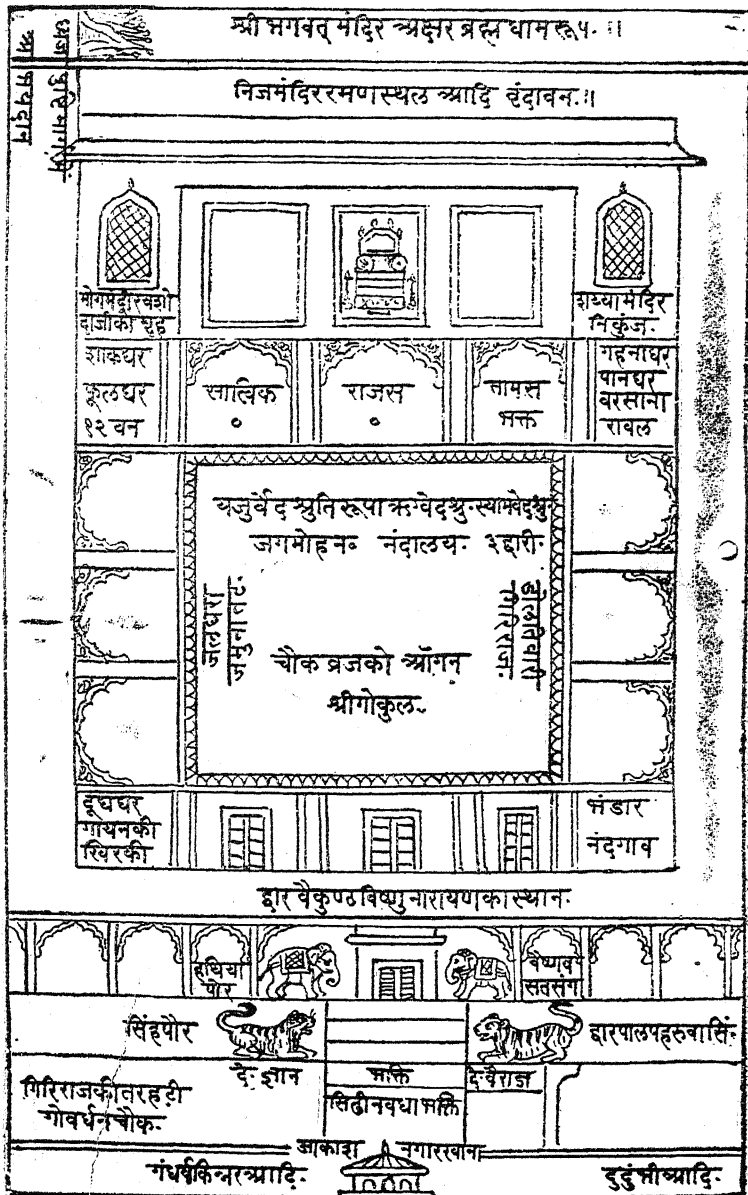 श्री भगवत् मंदिर अक्षर ब्रह्म धामरूप.॥
ध्वजा पुष्टि मार्ग में
अभयदान
निजमंदिररमणस्थल आदि वृंदावन.॥
भोगमंदीरयशो
दाजीको गृह
शय्यामंदिर
निकुंज.
शाकघर
फूलघर
१२ वन
सात्विक
राजस
तामस
भक्त
गहनाघर
पानघर
बरसाना
रावल
यजुर्वेद श्रुतिरूपा ऋग्वेदश्रु. स्यामवेदश्रु.
जगमोहन. नंदालय. ३द्वारी.
जलघरा
जमुनातट.
डोलतिबारी
गिरिराज.
चौक व्रजको आँगन
श्रीगोकुल.
दूधघर
गायनकी
खिरकी
भंडार
नंदगाव
द्वार वैकुण्ठविष्णुनारायणकास्थान.
हथिया
पोर
वैष्णव
सतसंग
सिंहपौर
द्वारपालपहरुवासिं.
दे. ज्ञान
भक्ति
दे. वैराज्ञ
गिरिराजकीतरहटी
गोवर्धनचौक.
सिढीनवधाभक्ति
आकाश नगारखाना
गंधर्वकिन्नरआदि.
दुदुंभीआदि.